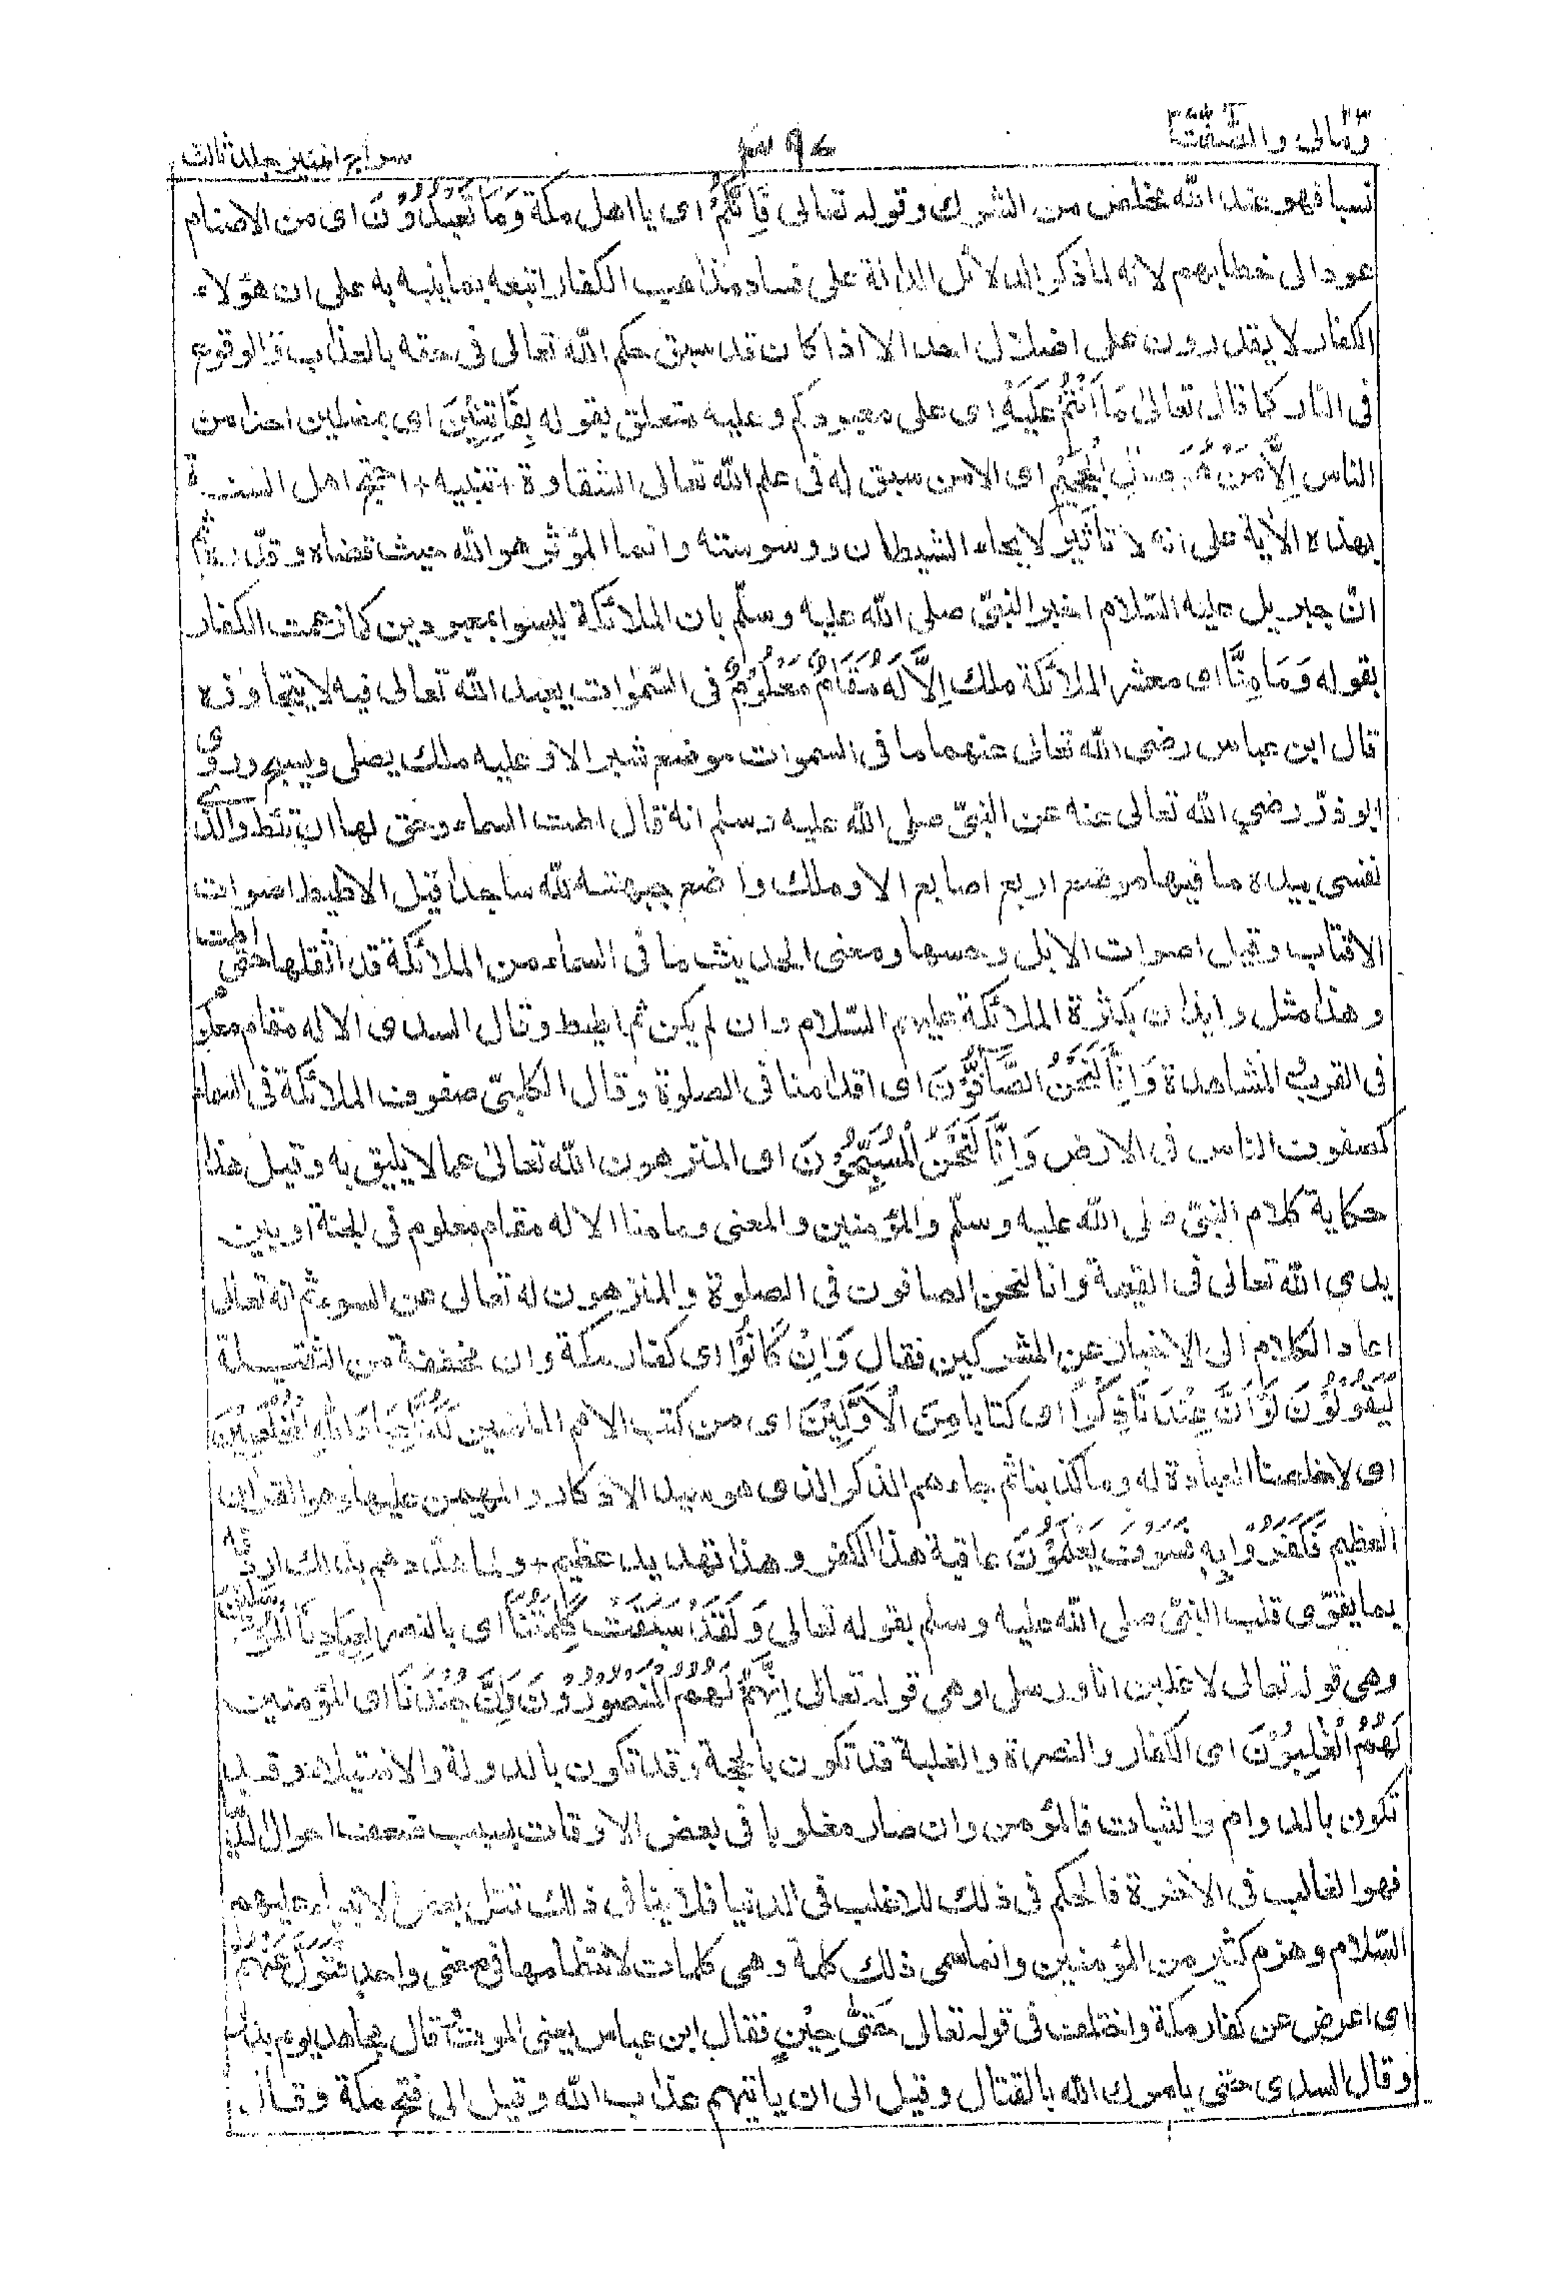 ومالى والصّٰفّٰت ٣٧
سراج المنير جلد ثالث
نسبا فهو عند الله مخلص من الشرك وقوله تعالى فَاِنَّكُمْ اى يا اهل مكة وَمَا تَعْبُدُوْنَ اى من الاصنام
عود الى خطابهم لانه لما ذكر الدلائل الدالة على فساد مذاهب الكفار اتبعه بما ينبه به على ان هؤلاء
الكفار لا يقدرون على اضلال احد الا اذا كان قد سبق حكم الله تعالى فى حقه بالعذاب والوقوع
فى النار كما قال تعالىٰ مَا اَنْتُمْ عَلَيْهِ اى على معبودكم وعليه متعلق بقوله بِفَاتِنِيْنَ اى بمضلين احدا من
الناس اِلَّا مَنْ هُوَ صَالِ الْجَحِيْمِ اى الا من سبق له فى علم الله تعالى الشقاوة + تنبيه + احتج اهل السنة
بهذه الآية على انه لا تأثير لايحاء الشيطان ووسوسته وانما المؤثر هو الله حيث قضاه وقدره ثم
انّ جبريل عليه السّلام اخبر النبىّ صلى الله عليه وسلّم بان الملائكة ليسوا بمعبودين كما زعمت الكفار
بقوله وَمَا مِنَّا اى معشر الملائكة ملك اِلَّا لَهٗ مَقَامٌ مَّعْلُوْمٌ فى السّمٰوات يعبد الله تعالى فيه لا يتجاوزه
قال ابن عباس رضى الله تعالى عنهما ما فى السموات موضع شبر الا وعليه ملك يصلى ويسبح وروى
ابو ذرّ رضي الله تعالى عنه عن النبىّ صلى الله عليه وسلم انه قال اطت السماء وحق لها ان تئط والذى
نفسى بيده ما فيها موضع اربع اصابع الا وملك واضع جبهته لله ساجدا قيل الاطيط اصوات
الاقتاب وقيل اصوات الابل وحسها ومعنى الحديث ما فى السماء من الملائكة قد اثقلها حتى اطت
وهذا مثل وايذان بكثرة الملائكة عليهم السّلام وان لم يكن ثم اطيط وقال السدى الا له مقام معلوم
فى القرب والمشاهدة وَاِنَّا لَنَحْنُ الصَّآفُّوْنَ اى اقدامنا فى الصلوة وقال الكلبىّ صفوف الملائكة فى السماء
كصفوف الناس فى الارض وَاِنَّا لَنَحْنُ الْمُسَبِّحُوْنَ اى المنزهون الله تعالىٰ عما لا يليق به وقيل هذا
حكاية كلام النبىّ صلى الله عليه وسلّم والمؤمنين والمعنى وما منا الا له مقام معلوم فى الجنة او بين
يدى الله تعالى فى القيمة وانا لنحن الصافون فى الصلوة والمنزهون له تعالى عن السوء ثم انه تعالى
اعاد الكلام الى الاخبار عن المشركين فقال وَاِنْ كَانُوْا اى كفار مكة وان مخففة من الثقيلة
لَيَقُوْلُوْنَ لَوْ اَنَّ عِنْدَنَا ذِكْرًا اى كتابا مِنَ الْاَوَّلِيْنَ اى من كتب الامم الماضين لَكُنَّا عِبَادَ اللهِ الْمُخْلَصِيْنَ
اى لاخلصنا العبادة له وما كذبنا ثم جاءهم الذكر الذى هو سيد الاذكار والمهيمن عليها وهو القرآن
العظيم فَكَفَرُوْا بِهٖ فَسَوْفَ يَعْلَمُوْنَ عاقبة هذا الكفر وهذا تهديد عظيم + ولما هددهم بذلك اردفه
بما يقوّى قلب النبىّ صلى الله عليه وسلم بقوله تعالى وَلَقَدْ سَبَقَتْ كَلِمَتُنَا اى بالنصر لِعِبَادِنَا الْمُرْسَلِيْنَ
وهى قوله تعالى لاغلبن انا ورسلى او هى قوله تعالى اِنَّهُمْ لَهُمُ الْمَنْصُوْرُوْنَ وَاِنَّ جُنْدَنَا اى المؤمنين
لَهُمُ الْغٰلِبُوْنَ اى الكفار والنصرة والغلبة قد تكون بالحجة وقد تكون بالدولة والاستيلاء وقد
تكون بالدوام والثبات فالمؤمن وان صار مغلوبا فى بعض الاوقات بسبب ضعف احوال الدنيا
فهو الغالب فى الآخرة فالحكم فى ذلك للاغلب فى الدنيا فلا ينافى ذلك قتل بعض الانبياء عليهم
السّلام وهزم كثير من المؤمنين وانما سمى ذلك كلمة وهى كلمات لانتظامها فى معنى واحد فَتَوَلَّ عَنْهُمْ
اى اعرض عن كفار مكة واختلف فى قوله تعالى حَتّٰى حِيْنٍ فقال ابن عباس يعنى الموت وقال مجاهد يوم بدر
وقال السدى حتى يامرك الله بالقتال وقيل الى ان ياتيهم عذاب الله وقيل الى فتح مكة وقال